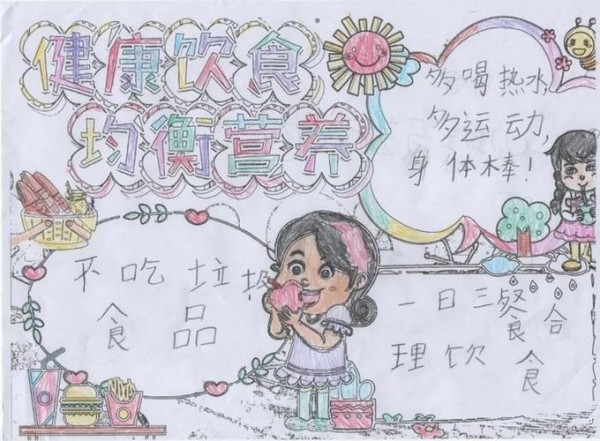 健康饮食
均衡营养
多喝热水,
多运动,
身体棒!
不吃垃圾
食品
一日三餐合
理饮食